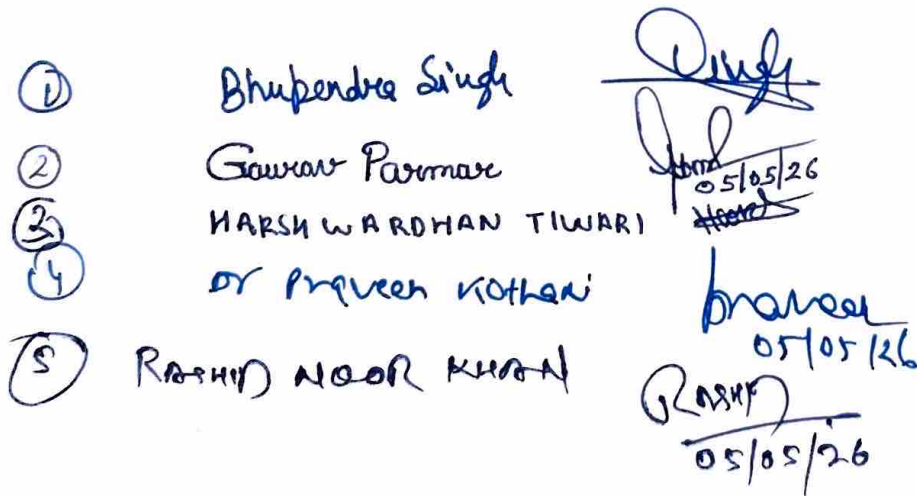 1 Bhupendra Singh Dsingh
2 Gaurav Parmar
05/05/26
3 HARSHWARDHAN TIWARI
4 Dr Praveen Kothari Praveen
05/05/26
5 RASHID NOOR KHAN RASHID
05/05/26